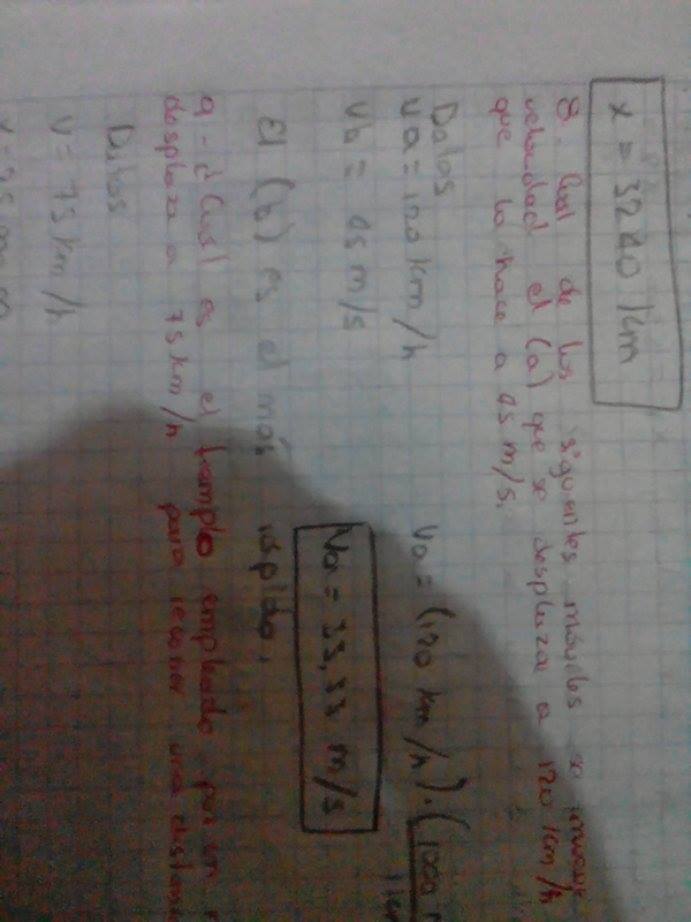 x = 3240 Km
8. Cual de los siguientes móviles se mueve
velocidad el (a) que se desplaza a 120 Km/h
que lo hace a 45 m/s.
Datos
Va = 120 Km/h
Va = (120 Km/h) . (1000
Vb = 45 m/s
Va = 33,33 m/s
El (b) es el más rápido.
9 - ¿Cual es el tiempo empleado por un
desplaza a 75 Km/h para recorrer una
Datos
V = 75 Km/h